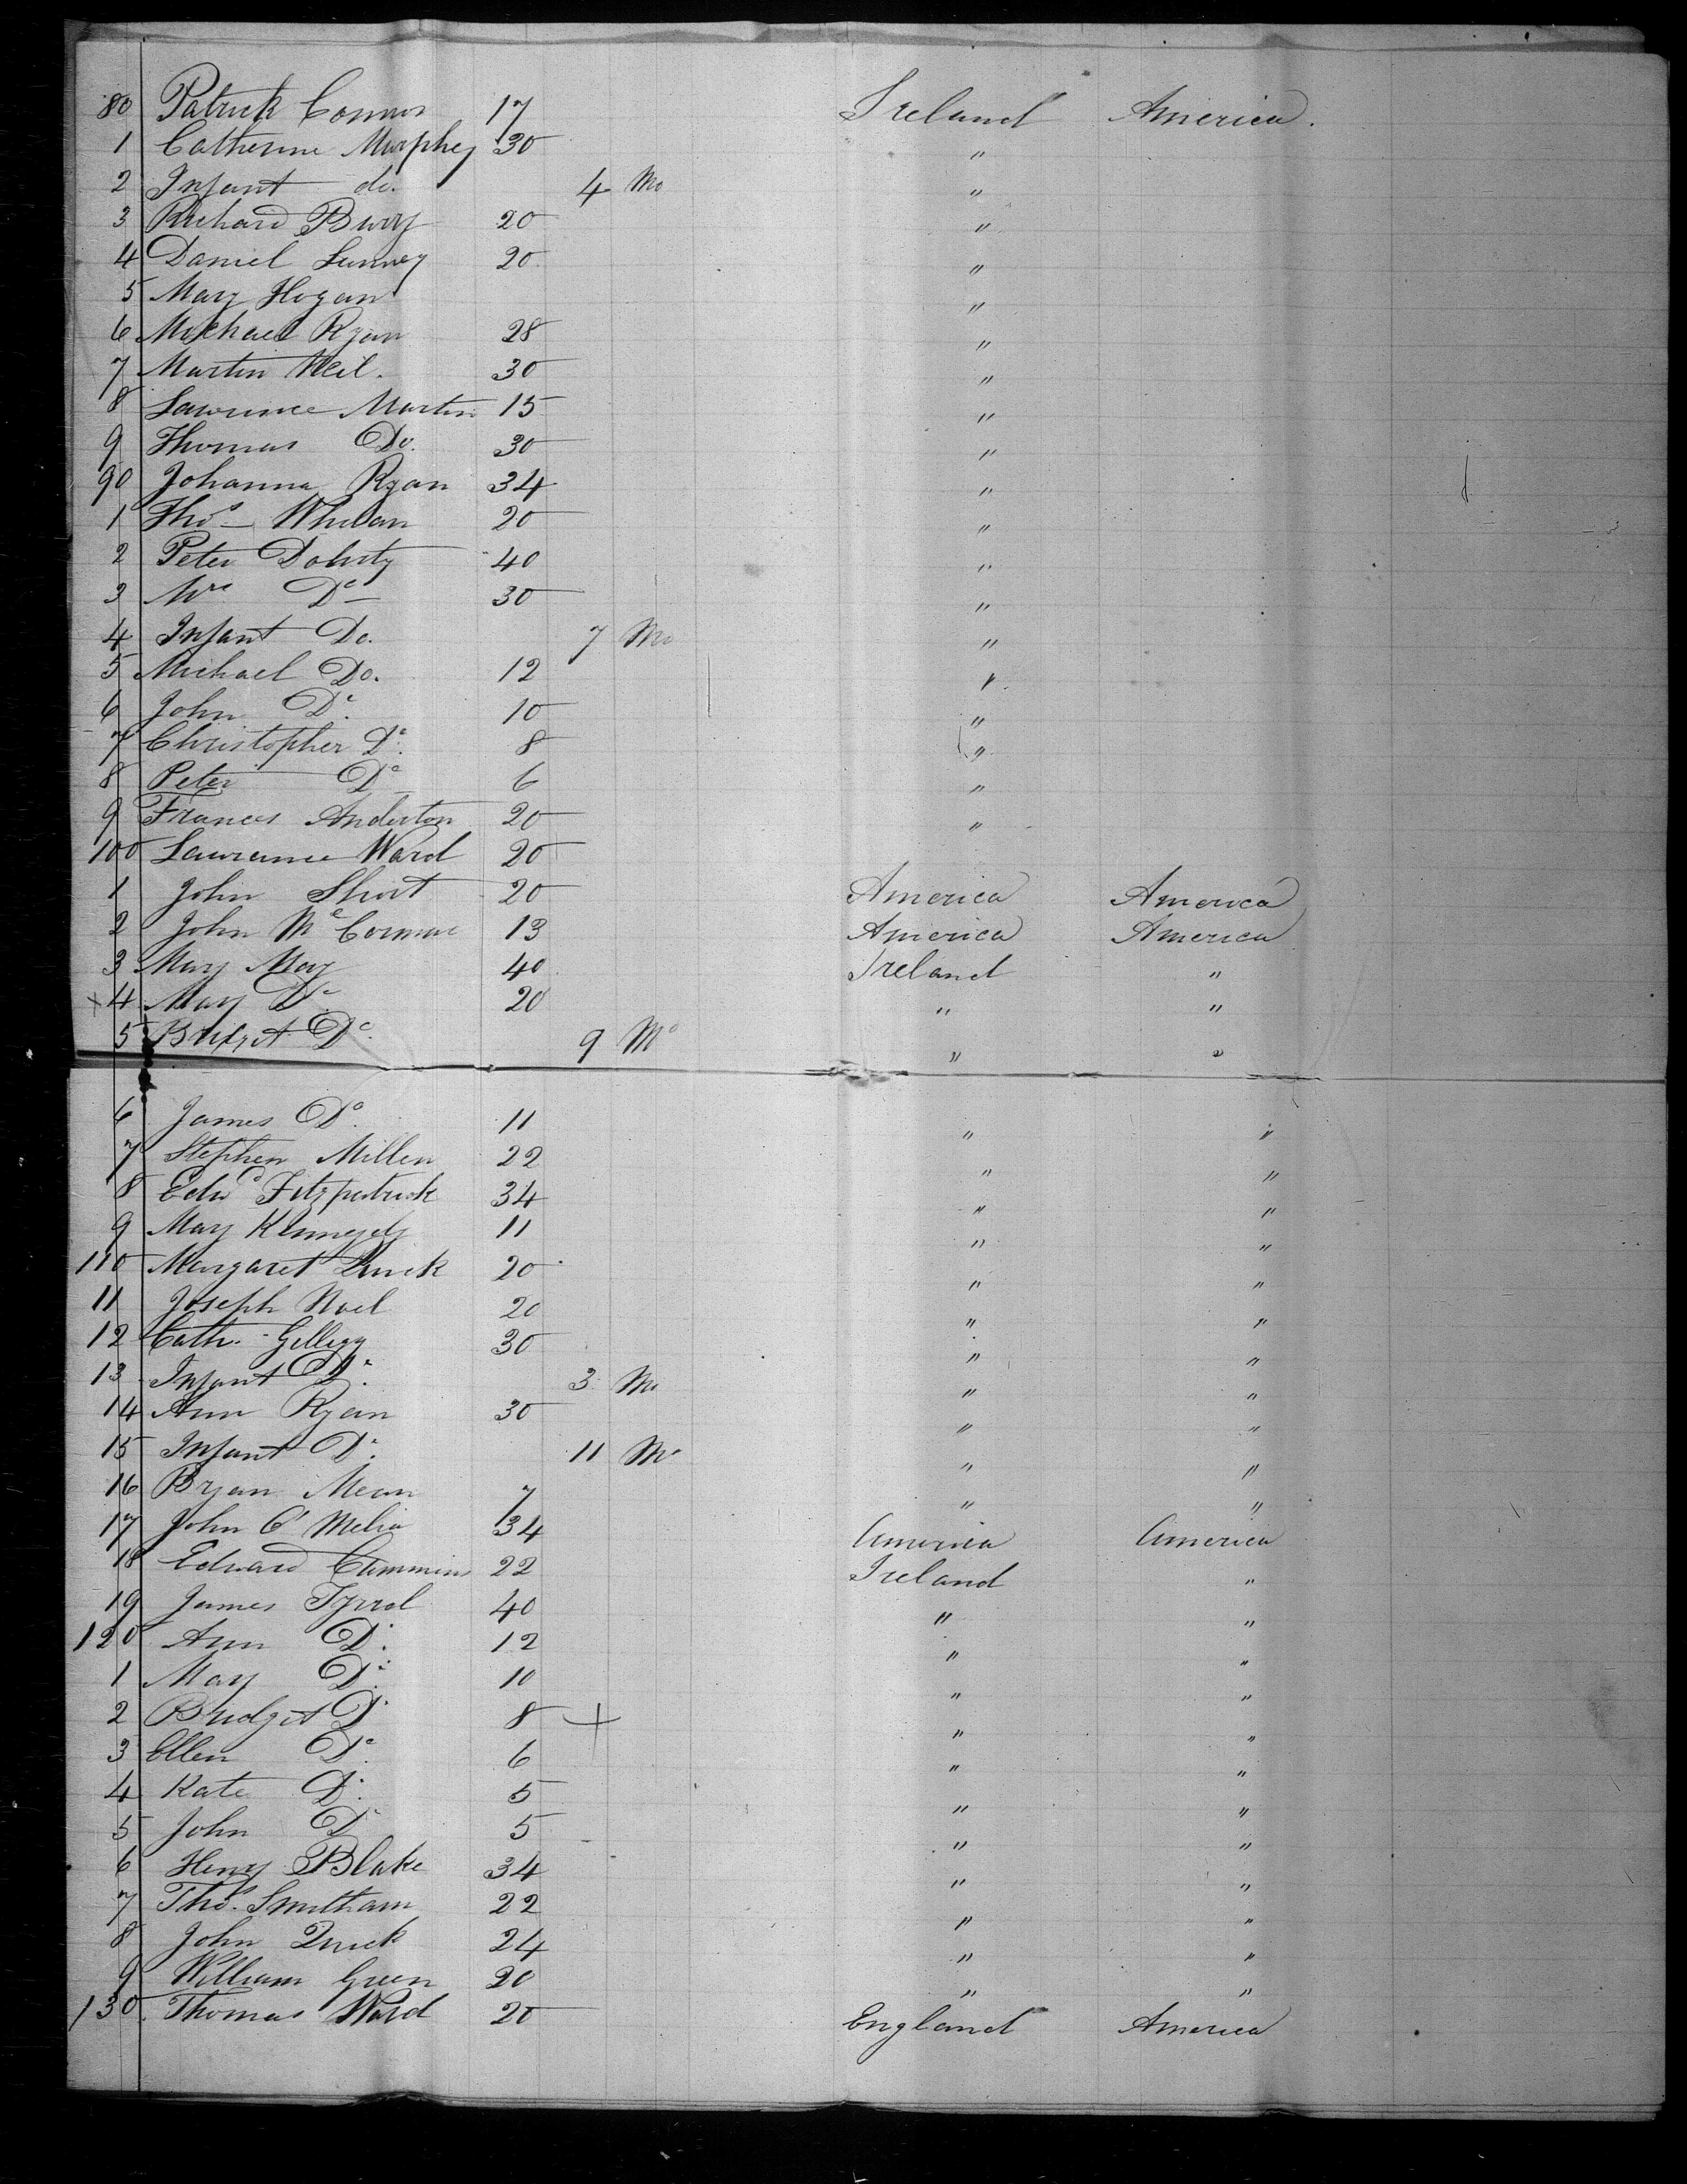 80 Patrick Connors 17 Ireland America.
1 Catherine Murphey 30 "
2 Infant do. 4 Mo "
3 Richard 20 "
4 Daniel 20 "
5 Mary Hogan "
6 Michael Ryan 28 "
7 Martin Neil. 30 "
8 Lawrence Martin 15 "
9 Thomas Do. 30 "
90 Johanna Ryan 34 "
1 Thos Whelan 20 "
2 Peter Dohirty 40 "
3 Mrs Do 30 "
4 Infant Do. 7 Mo "
5 Michael Do. 12 "
6 John Do. 10 "
7 Christopher Do. 8 "
8 Peter Do 6 "
9 Frances Anderton 20 "
100 Lawrance Ward 20
1 John Short 20 America America
2 John McCormac 13 America America
3 Mary May 40 Ireland "
+4 Mary Do. 20 " "
5 Bridget Do. 9 Mo " "
6 James Do. 11 " "
7 Stephen Millen 22 " "
8 Edwd Fitzpatrick 34 " "
9 Mary Kennedy 11 " "
110 Margaret Quick 20 " "
11 Joseph Noel 20 " "
12 Cath. 30 " "
13 Infant Do. 3 Mo " "
14 Ann Ryan 30 " "
15 Infant Do. 11 Mo " "
16 Bryan Mean 7 " "
17 John O'Melia 34 America America
18 Edward Cummins 22 Ireland "
19 James Tyrrol 40 " "
120 Ann Do. 12 " "
1 Mary Do. 10 " "
2 Bridget Do 8 + " "
3 Ellen Do. 6 " "
4 Kate Do. 5 " "
5 John Do 5 " "
6 Henry Blake 34 " "
7 Thos. Smitham 22 " "
8 John Quick 24 " "
9 William Green 20 " "
130 Thomas Ward 20 England America